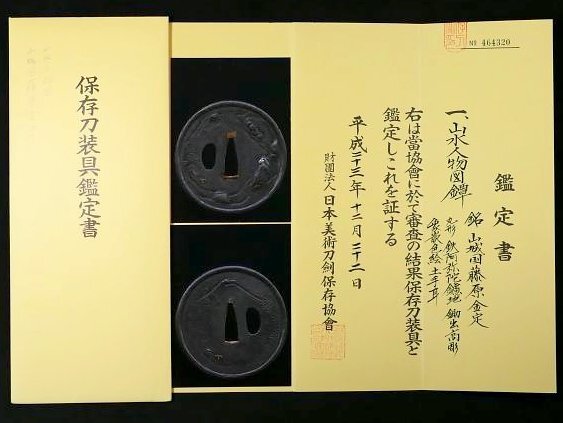 保存刀装具鑑定書
№ 464320
鑑定書
一、山水人物図鐔
銘 山城国藤原金定
丸形 鉄阿弥陀鑢地 鋤出高彫
象嵌色絵 土手耳
右は當協會に於て審査の結果保存刀装具と
鑑定しこれを証する
平成二十三年 十二月 二十二日
財團法人 日本美術刀劍保存協會